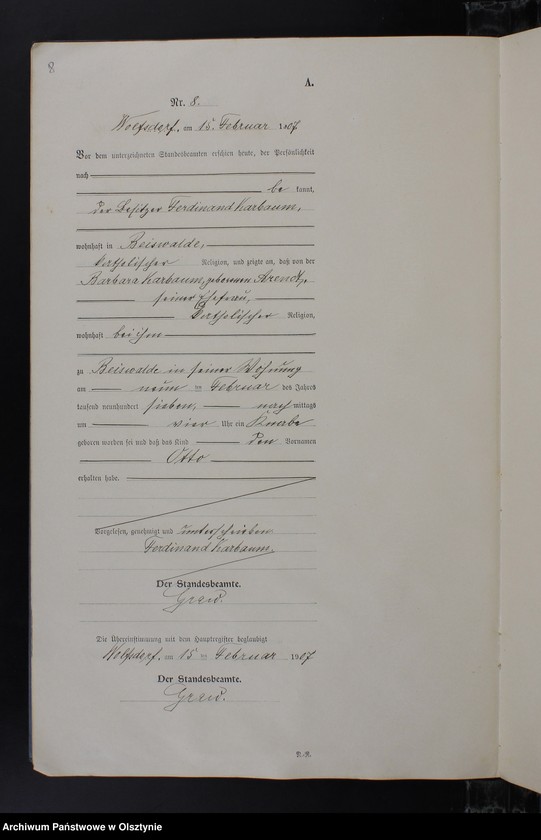 8
A.
Nr. 8.
Wolfsdorf, am 15. Februar 1907
Vor dem unterzeichneten Standesbeamten erschien heute, der Persönlichkeit
nach
be kannt,
der Besitzer Ferdinand Karbaum,
wohnhaft in Beiswalde,
katholischer Religion, und zeigte an, daß von der
Barbara Karbaum, geborenen Arendt,
seiner Ehefrau,
katholischer Religion,
wohnhaft bei ihm
zu Beiswalde in seiner Wohnung
am neun ten Februar des Jahres
tausend neunhundert sieben, nach mittags
um vier Uhr ein Knabe
geboren worden sei und daß das Kind den Vornamen
Otto
erhalten habe.
Vorgelesen, genehmigt und unterschrieben
Ferdinand Karbaum.
Der Standesbeamte.
Grew.
Die Übereinstimmung mit dem Hauptregister beglaubigt
Wolfsdorf, am 15 ten Februar 1907
Der Standesbeamte.
Grew.
Archiwum Państwowe w Olsztynie